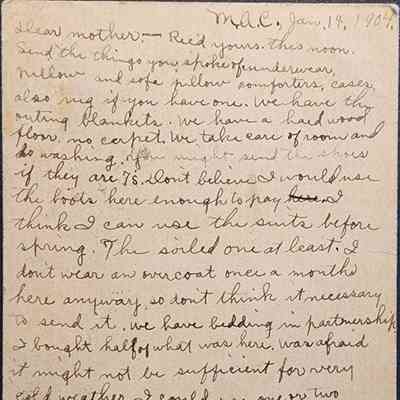 M.A.C., Jan. 19, 1904.
Dear mother.— Rec'd yours this noon.
Send the things you spoke of underwear,
Pillow and sofa pillow comforters, cases,
also rug if you have one. We have the
outing blankets. We have a hard wood
floor, no carpet. We take care of room and
do washing. You might send the shoes
if they are 7s. Dont believe I would use
the boots here enough to pay I
think I can use the suits before
spring. The soiled one at least. I
don't wear an overcoat once a month
here anyway, so don't think it necessary
to send it. We have bedding in partnership
I bought half of what was here. Was afraid
it might not be sufficient for very
cold weather. I could use one or two